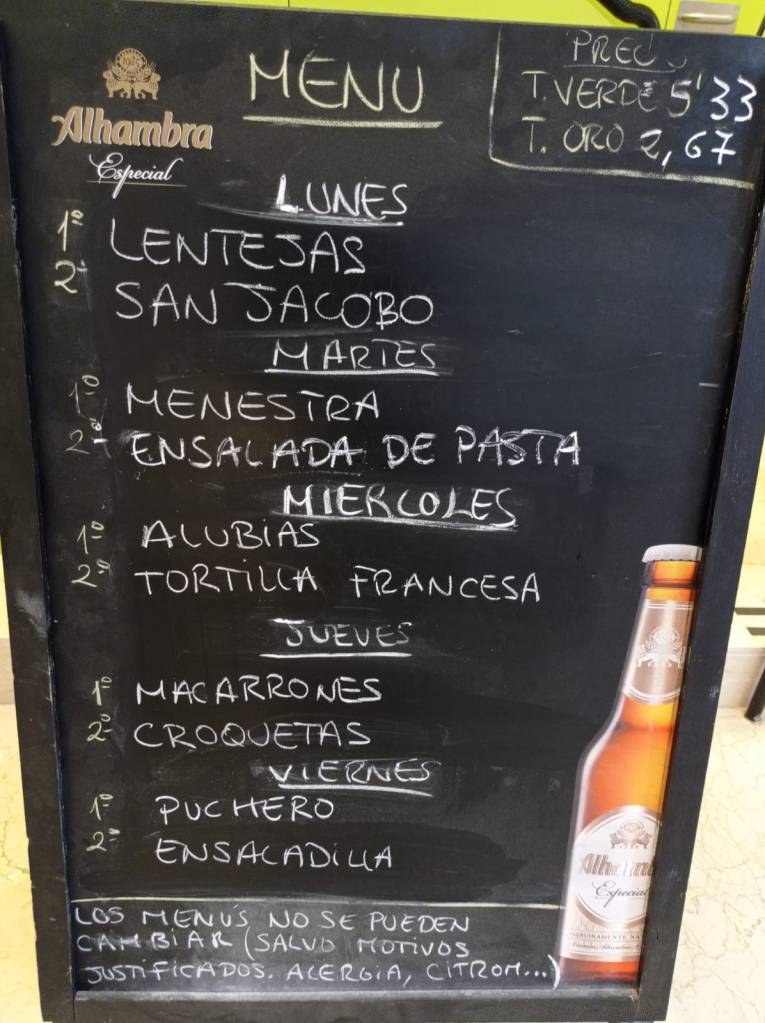 Alhambra
Especial
MENU
PRECIO
T. VERDE 5'33
T. ORO 2,67
LUNES
1º LENTEJAS
2º SAN JACOBO
MARTES
1º MENESTRA
2º ENSALADA DE PASTA
MIERCOLES
1º ALUBIAS
2º TORTILLA FRANCESA
JUEVES
1º MACARRONES
2º CROQUETAS
VIERNES
1º PUCHERO
2º ENSALADILLA
LOS MENU'S NO SE PUEDEN
CAMBIAR (SALVO MOTIVOS
JUSTIFICADOS. ALERGIA, CITROM...)
Alhambra
Especial